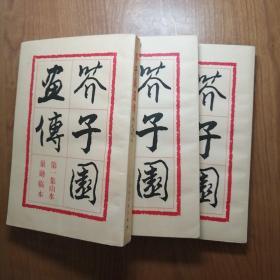 芥子園
畫傳
第一集山水
巢勛临本
芥子園
芥子園